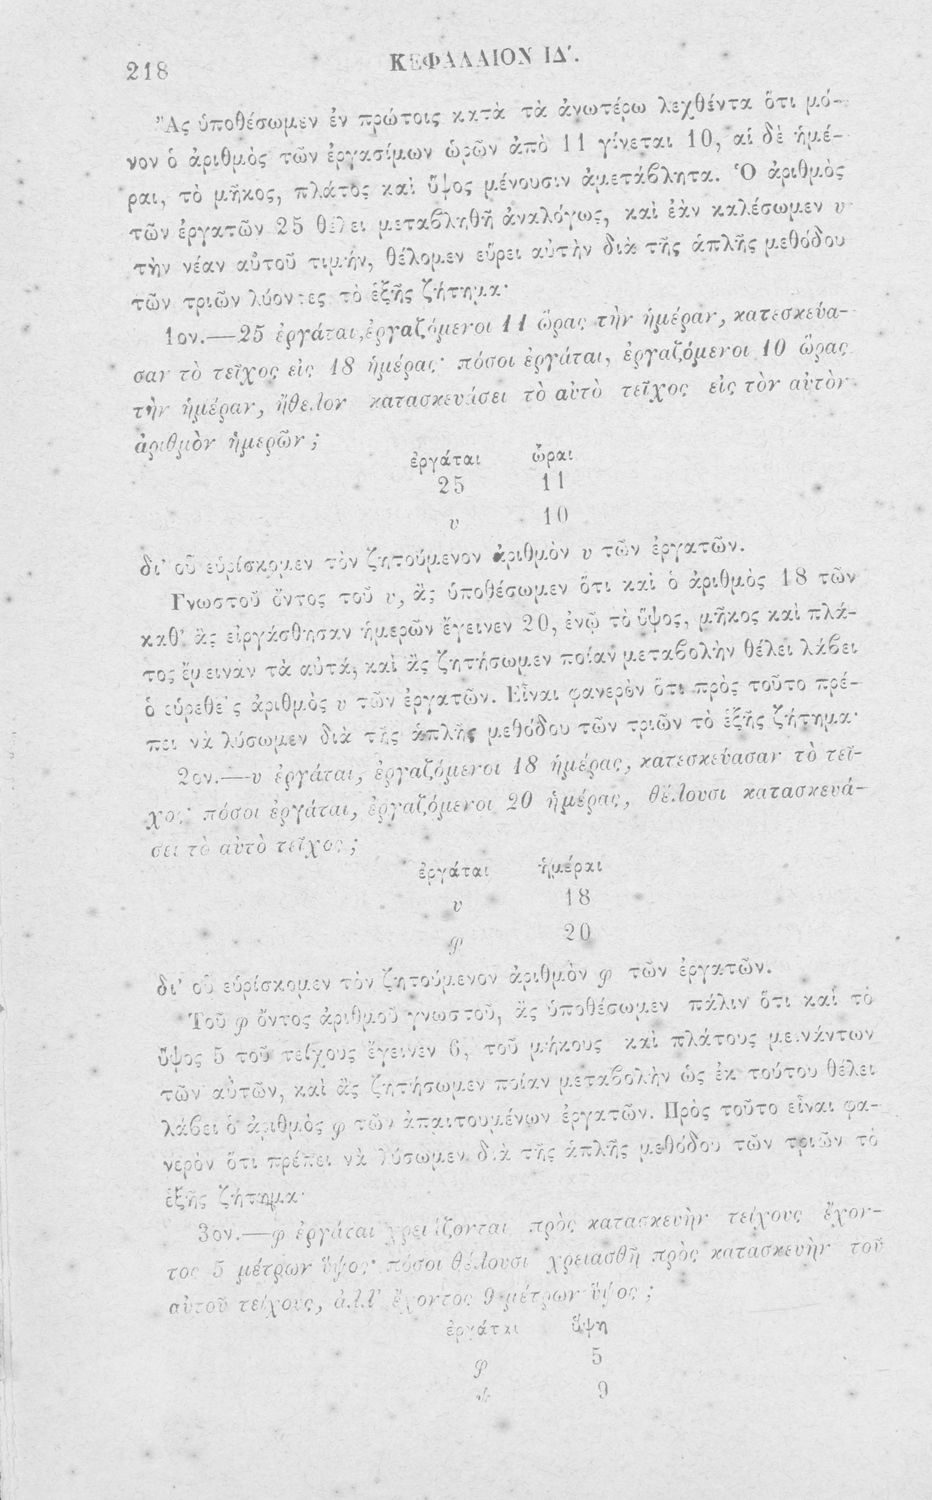 218
ΚΕΦΑΛΑΙΟΝ ΙΔ΄.
Ἂς ὑποθέσωμεν ἐν πρώτοις κατὰ τὰ ἀνωτέρω λεχθέντα ὅτι μό-
νον ὁ ἀριθμὸς τῶν ἐργασίμων ὡρῶν ἀπὸ 11 γίνεται 10, αἱ δὲ ἡμέ-
ραι, τὸ μῆκος, πλάτος καὶ ὕψος μένουσιν ἀμετάβλητα. Ὁ ἀριθμὸς
τῶν ἐργατῶν 25 θέλει μεταβληθῆ ἀναλόγως, καὶ ἐὰν καλέσωμεν υ
τὴν νέαν αὐτοῦ τιμὴν, θέλομεν εὕρει αὐτὴν διὰ τῆς ἁπλῆς μεθόδου
τῶν τριῶν λύοντες τὸ ἑξῆς ζήτημα·
1ον.—25 ἐργάται, ἐργαζόμενοι 11 ὥρας τὴν ἡμέραν, κατεσκεύα-
σαν τὸ τεῖχος εἰς 18 ἡμέρας· πόσοι ἐργάται, ἐργαζόμενοι 10 ὥρας
τὴν ἡμέραν, ἤθελον κατασκευάσει τὸ αὐτὸ τεῖχος εἰς τὸν αὐτὸν
ἀριθμὸν ἡμερῶν ;
ἐργάται ὧραι
25 11
υ 10
δι' οὗ εὑρίσκομεν τὸν ζητούμενον ἀριθμὸν υ τῶν ἐργατῶν.
Γνωστοῦ ὄντος τοῦ υ, ἂς ὑποθέσωμεν ὅτι καὶ ὁ ἀριθμὸς 18 τῶν
καθ' ἃς εἰργάσθησαν ἡμερῶν ἔγεινεν 20, ἐνῷ τὸ ὕψος, μῆκος καὶ πλά-
τος ἔμειναν τὰ αὐτά, καὶ ἂς ζητήσωμεν ποίαν μεταβολὴν θέλει λάβει
ὁ εὑρεθεὶς ἀριθμὸς υ τῶν ἐργατῶν. Εἶναι φανερὸν ὅτι πρὸς τοῦτο πρέ-
πει νὰ λύσωμεν διὰ τῆς ἁπλῆς μεθόδου τῶν τριῶν τὸ ἑξῆς ζήτημα·
2ον.—υ ἐργάται, ἐργαζόμενοι 18 ἡμέρας, κατεσκεύασαν τὸ τεῖ-
χος· πόσοι ἐργάται, ἐργαζόμενοι 20 ἡμέρας, θέλουσι κατασκευά-
σει τὸ αὐτὸ τεῖχος ;
ἐργάται ἡμέραι
υ 18
φ 20
δι' οὗ εὑρίσκομεν τὸν ζητούμενον ἀριθμὸν φ τῶν ἐργατῶν.
Τοῦ φ ὄντος ἀριθμοῦ γνωστοῦ, ἂς ὑποθέσωμεν πάλιν ὅτι καὶ τὸ
ὕψος 5 τοῦ τείχους ἔγεινεν 6, τοῦ μήκους καὶ πλάτους μεινάντων
τῶν αὐτῶν, καὶ ἂς ζητήσωμεν ποίαν μεταβολὴν ὡς ἐκ τούτου θέλει
λάβει ὁ ἀριθμὸς φ τῶν ἀπαιτουμένων ἐργατῶν. Πρὸς τοῦτο εἶναι φα-
νερὸν ὅτι πρέπει νὰ λύσωμεν διὰ τῆς ἁπλῆς μεθόδου τῶν τριῶν τὸ
ἑξῆς ζήτημα·
3ον.—φ ἐργάται χρειάζονται πρὸς κατασκευὴν τείχους ἔχον-
τος 5 μέτρων ὕψος· πόσοι θέλουσι χρειασθῆ πρὸς κατασκευὴν τοῦ
αὐτοῦ τείχους, ἀλλ' ἔχοντος 9 μέτρων ὕψος ;
ἐργάται ὕψη
φ 5
ψ 9